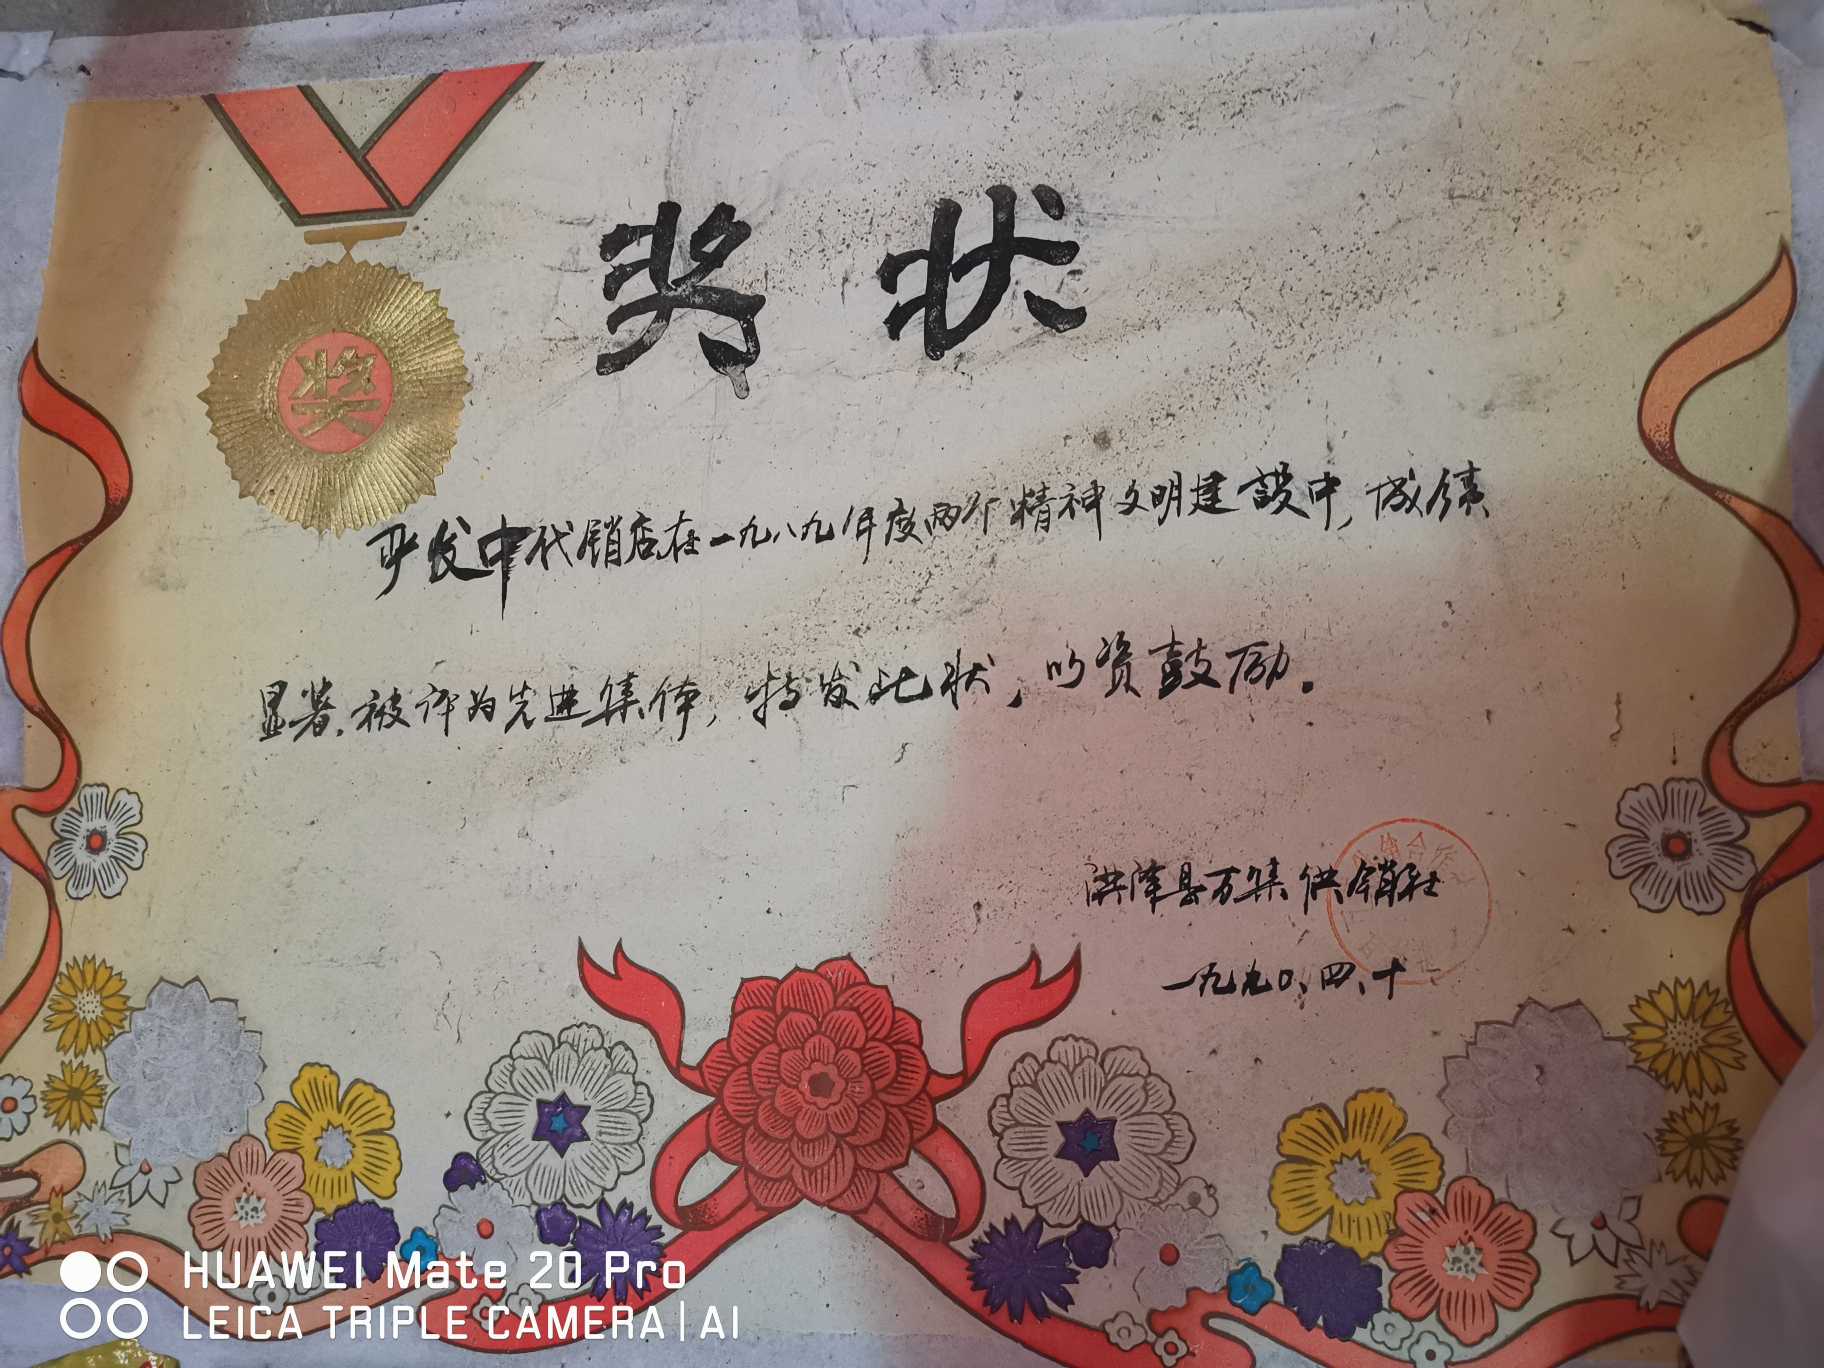 奖状
奖
代销店在一九八九年度两个精神文明建設中,成绩
显著.被评为先进集体,特发此状,以资鼓励.
洪泽县万集供销社
一九九〇、四、十
HUAWEI Mate 20 Pro
LEICA TRIPLE CAMERA | AI